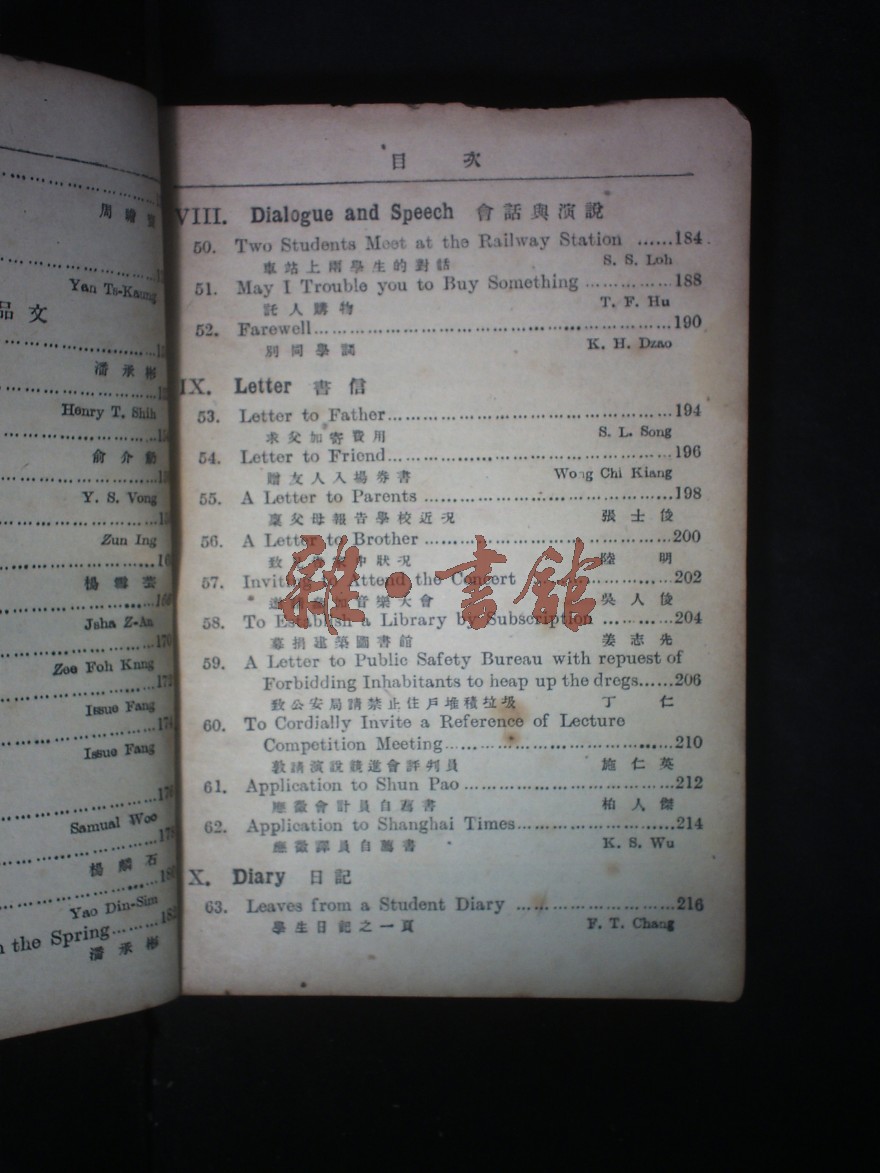 周
Yan Ts-Kaung
品文
潘承彬
Henry T. Shih
俞介
Y. S. Vong
Zun Ing
楊雪
166
Jsha Z-An
170
Zoe Foh Knng
172
Issue Fang
174
Issue Fang
176
Samual Woo
178
楊麟石
180
Yao Din-Sim
the Spring.........182
潘承彬
目 次
VIII. Dialogue and Speech 會話與演說
50. Two Students Meet at the Railway Station ......184
車站上兩學生的對話 S. S. Loh
51. May I Trouble you to Buy Something ...............188
託人購物 T. F. Hu
52. Farewell...............190
別同學 K. H. Dzao
IX. Letter 書信
53. Letter to Father...............194
求父加寄費用 S. L. Song
54. Letter to Friend...............196
贈友人入場券書 Wong Chi Kiang
55. A Letter to Parents ...............198
稟父母報告學校近況 張士俊
56. A Letter to Brother ...............200
致 狀況 陸明
57. Inviting to Attend the Concert ...............202
音樂大會 吳人俊
58. To Establish a Library by Subscription .........204
募捐建築圖書館 姜志先
59. A Letter to Public Safety Bureau with repuest of
Forbidding Inhabitants to heap up the dregs......206
致公安局請禁止住戶堆積垃圾 丁仁
60. To Cordially Invite a Reference of Lecture
Competition Meeting...............210
敦請演說競進會評判員 施仁英
61. Application to Shun Pao ...............212
應徵會計員自薦書 柏人傑
62. Application to Shanghai Times...............214
應徵譯員自薦書 K. S. Wu
X. Diary 日記
63. Leaves from a Student Diary ...............216
學生日記之一頁 F. T. Chang
雜·書館